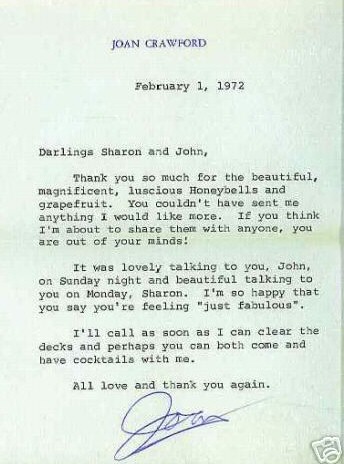 JOAN CRAWFORD
February 1, 1972
Darlings Sharon and John,
Thank you so much for the beautiful,
magnificent, luscious Honeybells and
grapefruit. You couldn't have sent me
anything I would like more. If you think
I'm about to share them with anyone, you
are out of your minds!
It was lovely talking to you, John,
on Sunday night and beautiful talking to
you on Monday, Sharon. I'm so happy that
you say you're feeling "just fabulous".
I'll call as soon as I can clear the
decks and perhaps you can both come and
have cocktails with me.
All love and thank you again.
Joan